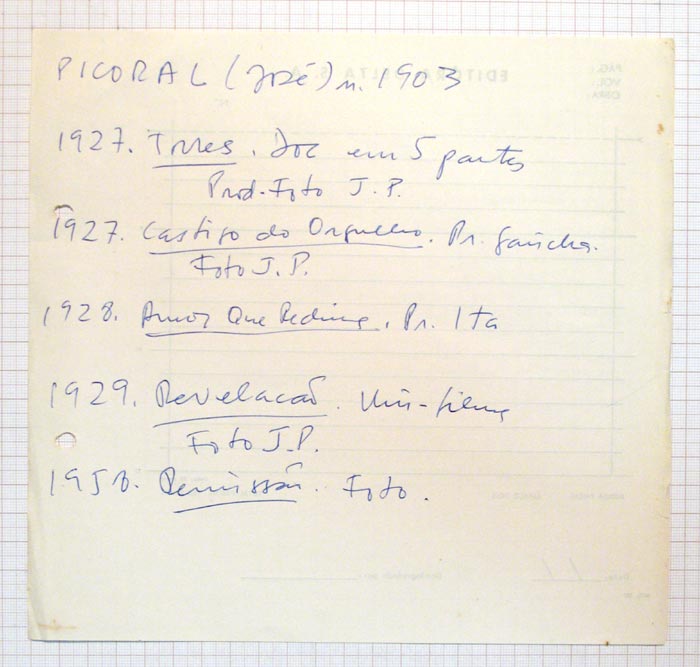 PICORAL (José) n. 1903
1927. Torres. Doc em 5 partes
Prod. Foto J. P.
1927. Castigo do Orgulho. Pr. Gaúcha.
Foto J. P.
1928. Amor Que Redime. Pr. Ita
1929. Revelação. Uni-filme
Foto J. P.
Remissão. Foto.
EDITÔRA DELTA S. A.
PÁG.:
VOL.:
OBRA: